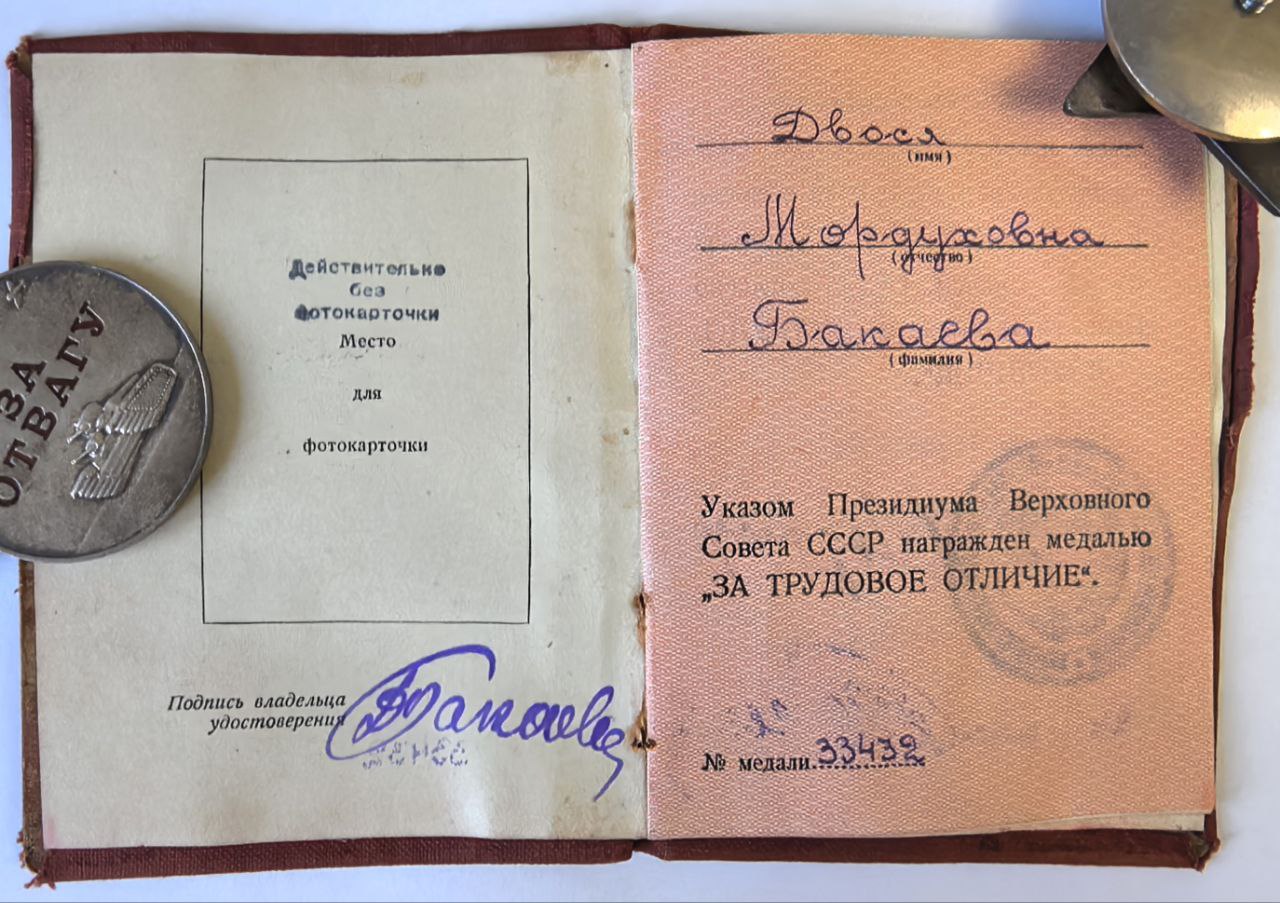 Действительно
без
фотокарточки
Место
для
фотокарточки
Подпись владельца
удостоверения
Бакаева
ЗА
ОТВАГУ
Двося
(имя)
Мордуховна
(отчество)
Бакаева
(фамилия)
Указом Президиума Верховного
Совета СССР награжден медалью
„ЗА ТРУДОВОЕ ОТЛИЧИЕ“.
№ медали 33432